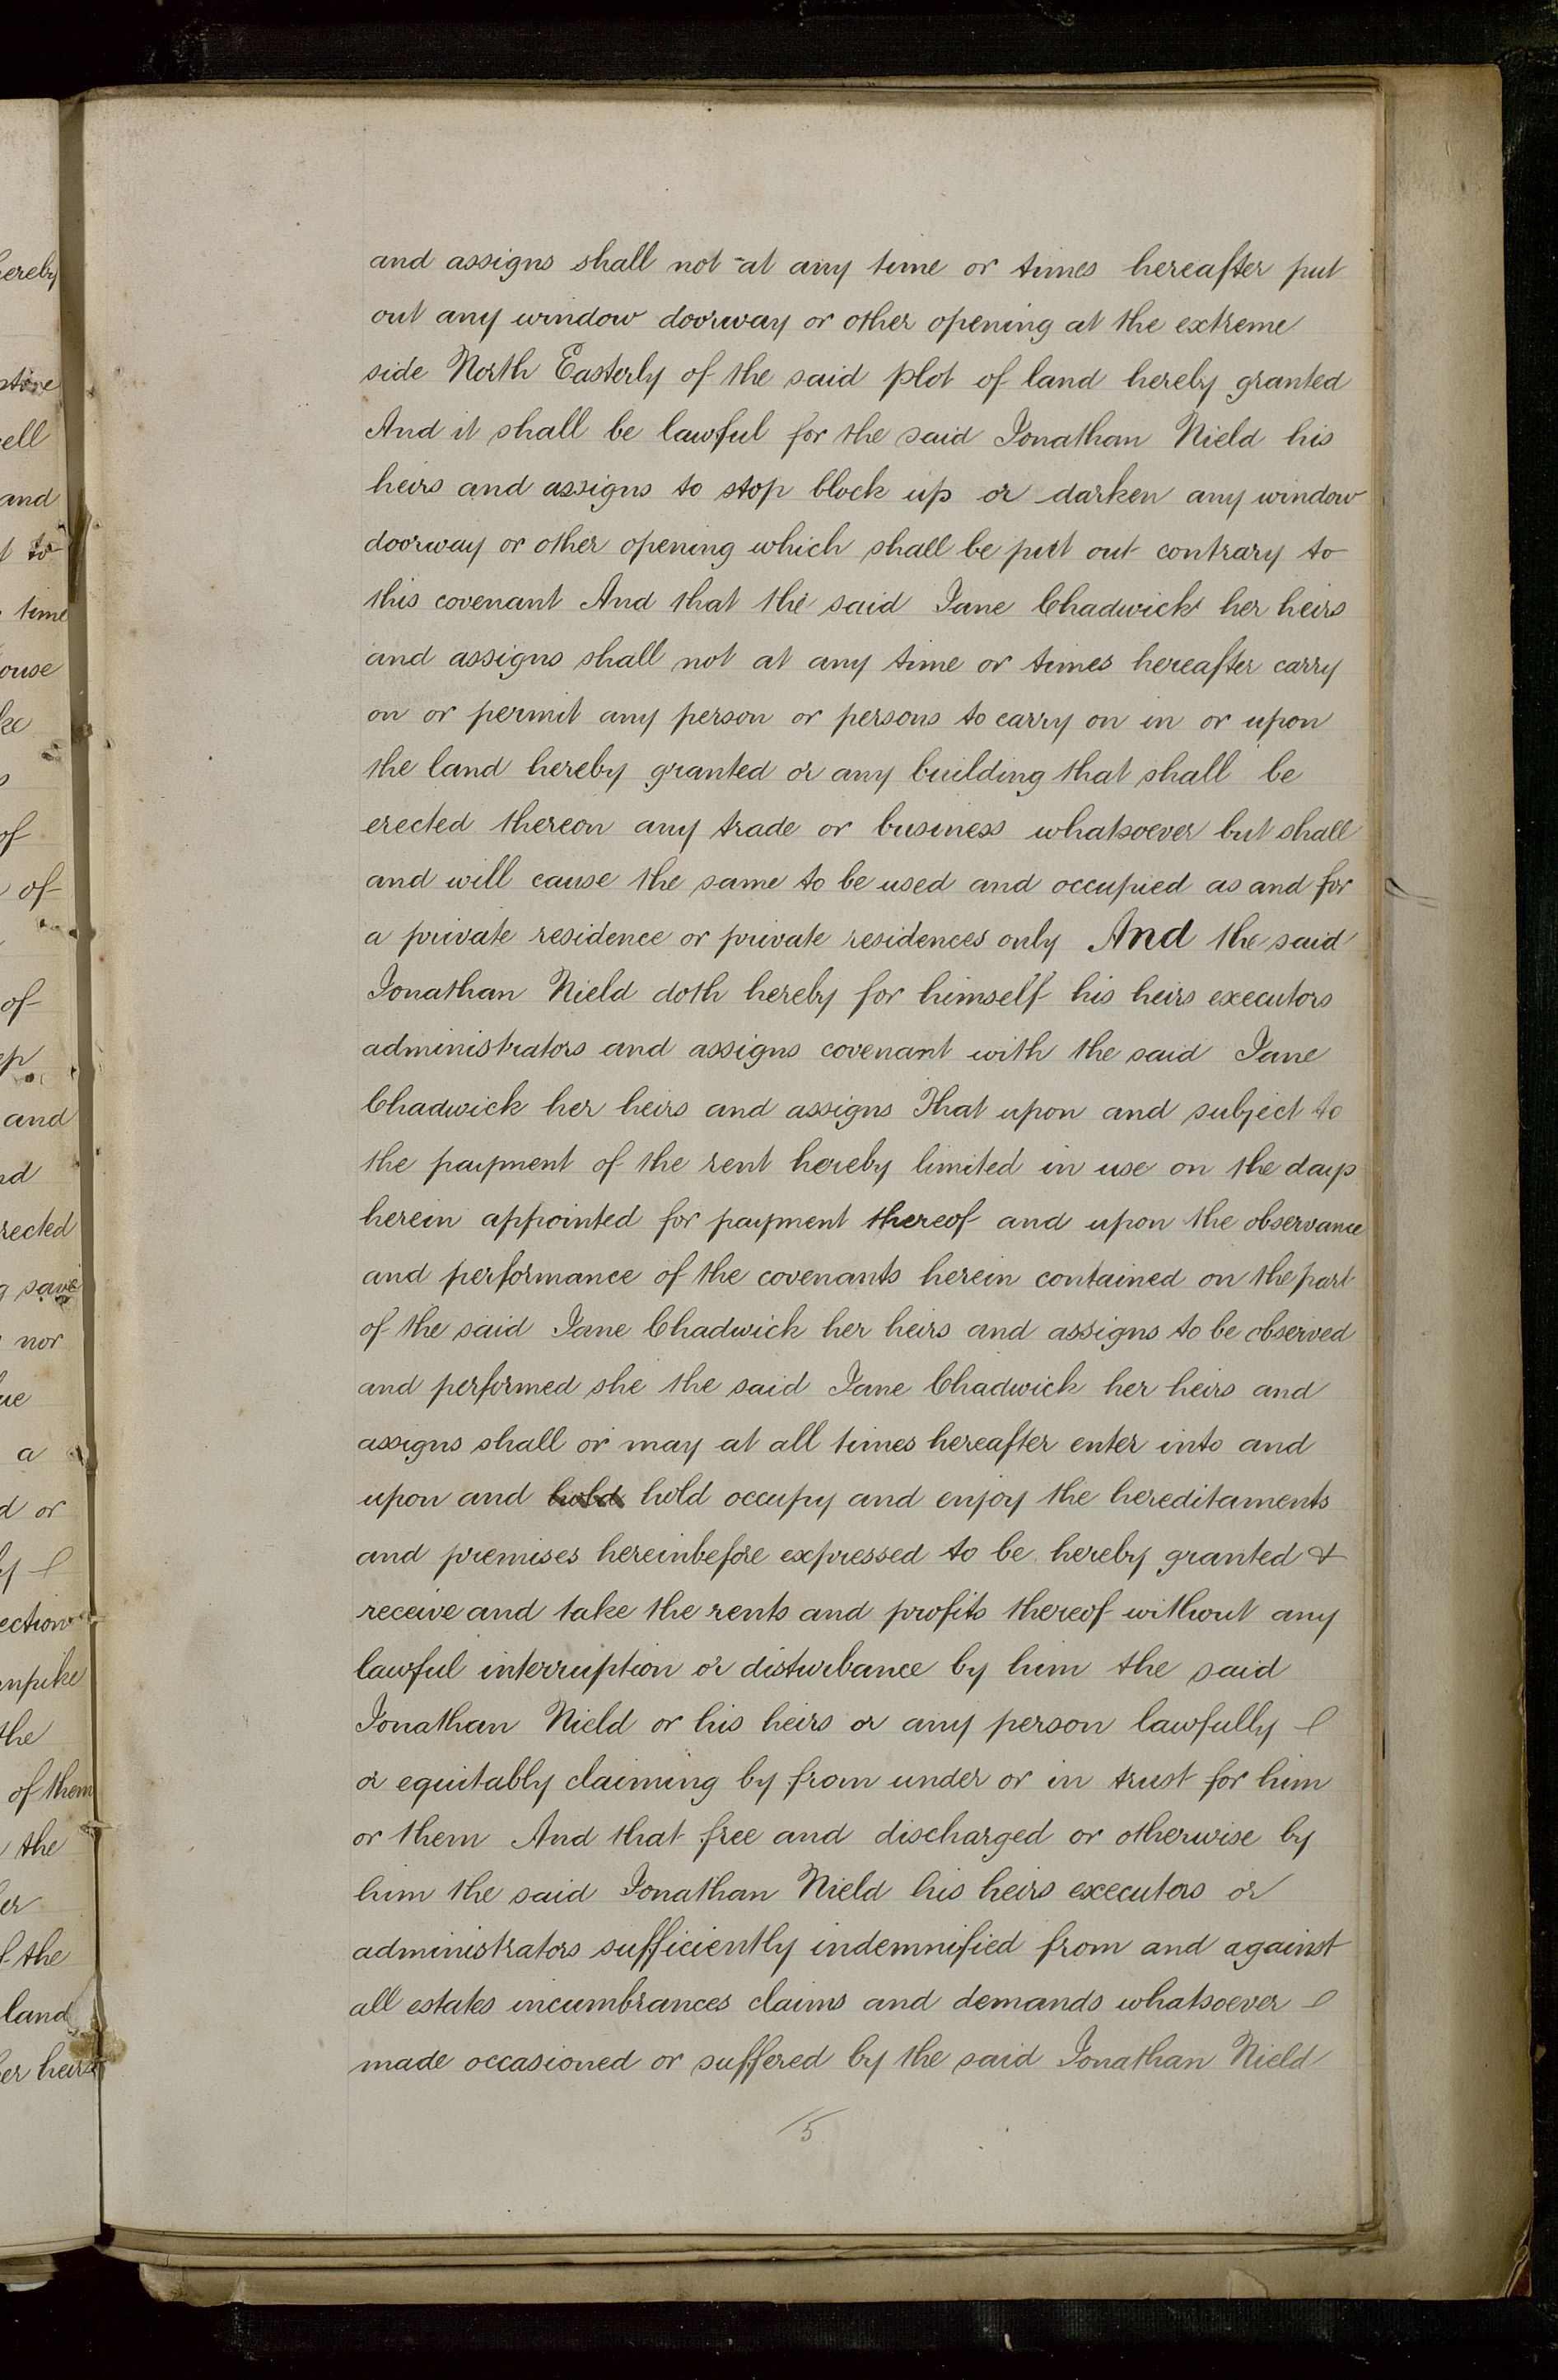 and assigns shall not at any time or times hereafter put
out any window doorway or other opening at the extreme
side North Easterly of the said plot of land hereby granted
And it shall be lawful for the said Jonathan Nield his
heirs and assigns to stop block up or darken any window
doorway or other opening which shall be put out contrary to
this covenant And that the said Jane Chadwick her heirs
and assigns shall not at any time or times hereafter carry
on or permit any person or persons to carry on in or upon
the land hereby granted or any building that shall be
erected thereon any trade or business whatsoever but shall
and will cause the same to be used and occupied as and for
a private residence or private residences only And the said
Jonathan Nield doth hereby for himself his heirs executors
administrators and assigns covenant with the said Jane
Chadwick her heirs and assigns That upon and subject to
the payment of the rent hereby limited in use on the days
herein appointed for payment thereof and upon the observance
and performance of the covenants herein contained on the part
of the said Jane Chadwick her heirs and assigns to be observed
and performed she the said Jane Chadwick her heirs and
assigns shall or may at all times hereafter enter into and
upon and hold hold occupy and enjoy the hereditaments
and premises hereinbefore expressed to be hereby granted &
receive and take the rents and profits thereof without any
lawful interruption or disturbance by him the said
Jonathan Nield or his heirs or any person lawfully
or equitably claiming by from under or in trust for him
or them And that free and discharged or otherwise by
him the said Jonathan Nield his heirs executors or
administrators sufficiently indemnified from and against
all estates incumbrances claims and demands whatsoever
made occasioned or suffered by the said Jonathan Nield
5